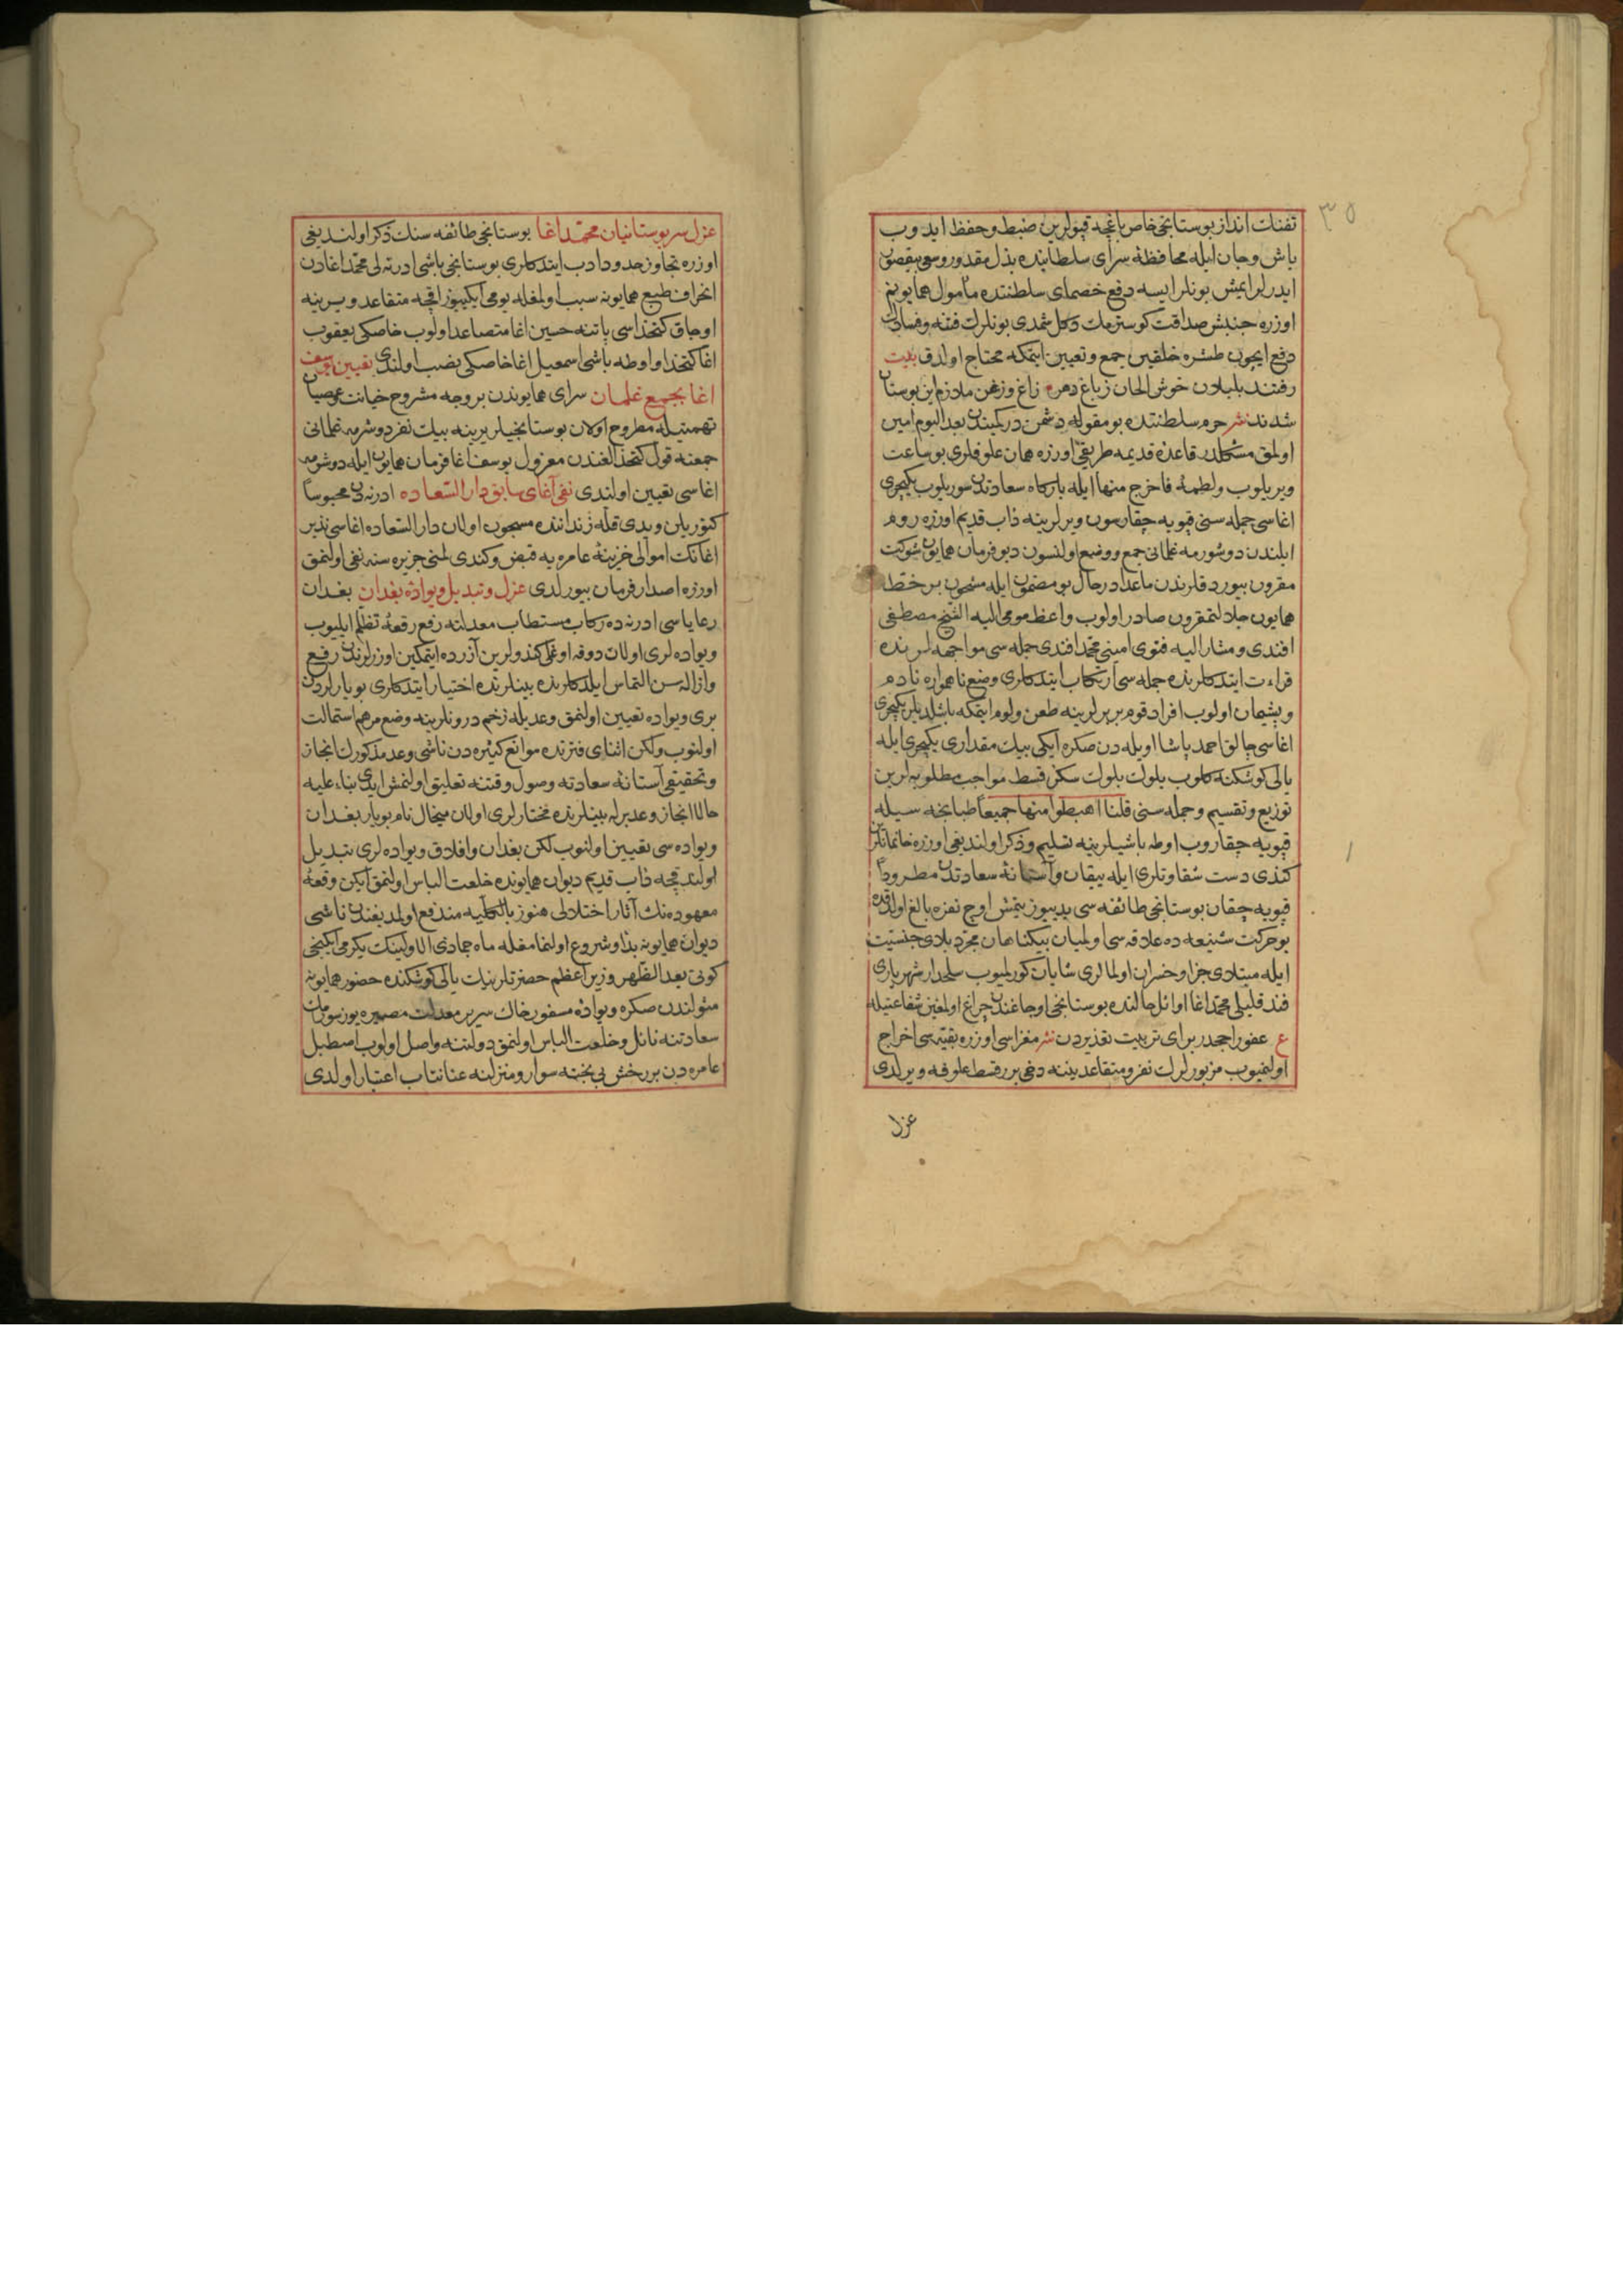 ٣٥
تفنك انداز بوستانجی خاص باغچه قپولرین ضبط و حفظ ایدوب
باش و جان ایله محافظهٔ سرای سلطانیده بذل مقدور و سعی بیقصور
ایدرلر ایمش بونلر ایسه دفع خصمای سلطنتده مأمول همایونم
اوزره جنبش صداقت كوسترمك دكل شمدی بونلرك فتنه و فسادلرن
دفع ایچون طشره خلقین جمع و تعیین ایتمكه محتاج اولدق بیت
رفتند بلبلان خوش الحان ز باغ دهر زاغ و زغن ملازم این بوستان
شدند نثر حرم سلطنتده بو مقوله دشمن در كمیندن بعد الیوم امین
اولمق مشكلدر قاعدهٔ قدیمه طریقی اوزره همان علوفلری بو ساعت
ویریلوب ولطمهٔ فاخرج منها ایله باركاه سعادتدن سوریلوب یكیچری
اغاسی جمله سنی قپویه چقارسون ویرلرینه داب قدیم اوزره روم
ایلندن دوشورمه غلمانی جمع و وضع اولنسون دیو فرمان همایون شوكت
مقرون بیوردقلرندن ماعدا در حال بو مضمون ایله مشحون بر خط
همایون جلادتمقرون صادر اولوب واعظ مومی الیه الشیخ مصطفی
افندی و مشار الیه فتوی امینی محمد افندی جمله سی مواجهه لرنده
قراءت ایتدكلرنده جمله سی ارتكاب ایتدكلری وضع ناهمواره نادم
و پشیمان اولوب افراد قوم بربرلرینه طعن و لوم ایتمكه باشلدیلر یكیچری
اغاسی چالق احمد پاشا اویله دن صكره ایكی بیك مقداری یكیچری ایله
یالی كوشكنه كلوب بلوك بلوك سكز قسط مواجب مطلوبه لرین
توزیع و تقسیم و جمله سنی قلنا اهبطوا منها جمیعاً طبانجه سیله
قپویه چقاروب اوطه باشیلرینه تسلیم و ذكر اولندیغی اوزره خانمانلرن
كندی دست شقاوتلری ایله ییقان و آستانهٔ سعادتدن مطروداً
قپویه چقان بوستانجی طائفه سی یدییوز یتمش اوچ نفره بالغ اولدقده
بو حركت شنیعه ده علاقه سی اولمیان بیكناهان مجرد بلای جنسیت
ایله مبتلای جزا و خسران اولمالری شایان كورلمیوب سلحدار شهریاری
فندقلیلی محمد اغا اوائل حالنده بوستانجی اوجاغندن چراغ اولمغین شفاعتیله
ع عفو راجحدر برای تربیت تعذیردن نثر مغزاسی اوزره بقیه سی اخراج
اولنمیوب مزبورلرك نفر و متقاعدینه دخی برر قسط علوفه ویرلدی
عزل
عزل سر بوستانیان محمد اغا بوستانجی طائفه سنك ذكر اولندیغی
اوزره تجاوز حدود ادب ایتدكلری بوستانجی باشی ادرنه لی محمد اغادن
انحراف طبع همایونه سبب اولمغله یومی ایكییوز اقچه متقاعد و یرینه
اوجاق كتخداسی پاتنه حسین اغا متصاعد اولوب خاصكی یعقوب
اغا كتخدا و اوطه باشی اسمعیل اغا خاصكی نصب اولندی تعیین یوسف
اغا بجمع غلمان سرای همایوندن بر وجه مشروح خیانت و عصیان
تهمتیله مطروح اولان بوستانجیلر یرینه بیك نفر دوشرمه غلمانی
جمعنه قول كتخدالغندن معزول یوسف اغا فرمان همایون ایله دوشرمه
اغاسی تعیین اولندی نفی آغای سابق دار السعاده ادرنه دن محبوساً
كتوریلن و یدی قله زنداننده مسجون اولان دار السعاده اغاسی نذیر
اغانك اموالی خزینهٔ عامره یه قبض و كندی لمنی جزیره سنه نفی اولنمق
اوزره اصدار فرمان بیورلدی عزل و تبدیل ویوادهٔ بغدان بغدان
رعایاسی ادرنه ده ركاب مستطاب معدلته رفع رقعهٔ تظلم ایلیوب
ویواده لری اولان دوقه اوغلی كندولرین آزرده ایتمكین اوزرلرندن رفع
و ازاله سن التماس ایلدكلرنده بینلرنده اختیار ایتدكلری بویارلردن
بری ویواده تعیین اولنمق وعدیله زخم درونلرینه وضع مرهم استمالت
اولنوب ولكن اثنای فترتده موانع كثیره دن ناشی وعد مذكورك انجاز
و تحقیقی آستانهٔ سعادته وصول وقتنه تعلیق اولنمش ایدی بناء علیه
حالا انجاز وعد برله بینلرنده مختارلری اولان میخال نام بویار بغدان
ویواده سی تعیین اولنوب لكن بغدان و افلاق ویواده لری تبدیل
اولندقجه داب قدیم دیوان همایونده خلعت الباس اولنمق ایكن وقعهٔ
معهوده نك آثار اختلالی هنوز بالكلیه مندفع اولمدیغندن ناشی
دیوان همایونه بدأ و شروع اولنمامغله ماه جمادی الاولینك یكرمی ایكنجی
كونی بعد الظهر وزیر اعظم حضرتلرینك یالی كوشكنده حضور همایونه
مثولندن صكره ویوادهٔ مسفور خاك سریر معدلت مصیره یوز سورمك
سعادتنه نائل و خلعت الباس اولنمق دولتنه واصل اولوب اصطبل
عامره دن بر رخش بی بخته سوار و منزلنه عنانتاب اعتبار اولدی